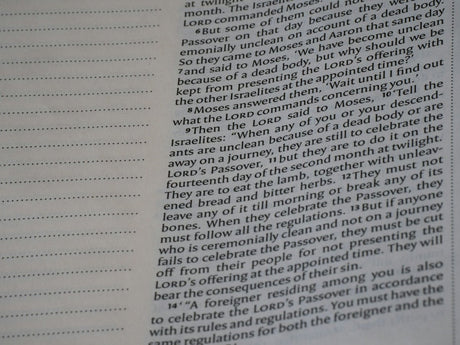 at twilight
month. The Israelites
LORD commanded Moses.
6 But some of them could not
Passover on that day because they were
emonially unclean on account of a dead body.
So they came to Moses and Aaron that same day
7 and said to Moses, ‘We have become unclean
because of a dead body, but why should we be
kept from presenting the LORD’s offering with
the other Israelites at the appointed time?’
8 Moses answered them, ‘Wait until I find out
what the LORD commands concerning you.’
9 Then the LORD said to Moses, 10 ‘Tell the
Israelites: “When any of you or your descend-
ants are unclean because of a dead body or are
away on a journey, they are still to celebrate the
LORD’s Passover, 11 but they are to do it on the
fourteenth day of the second month at twilight.
They are to eat the lamb, together with unleav-
ened bread and bitter herbs. 12 They must not
leave any of it till morning or break any of its
bones. When they celebrate the Passover, they
must follow all the regulations. 13 But if anyone
who is ceremonially clean and not on a journey
fails to celebrate the Passover, they must be cut
off from their people for not presenting the
LORD’s offering at the appointed time. They will
bear the consequences of their sin.
14 ‘ “A foreigner residing among you is also
to celebrate the LORD’s Passover in accordance
with its rules and regulations. You must have the
same regulations for both the foreigner and the